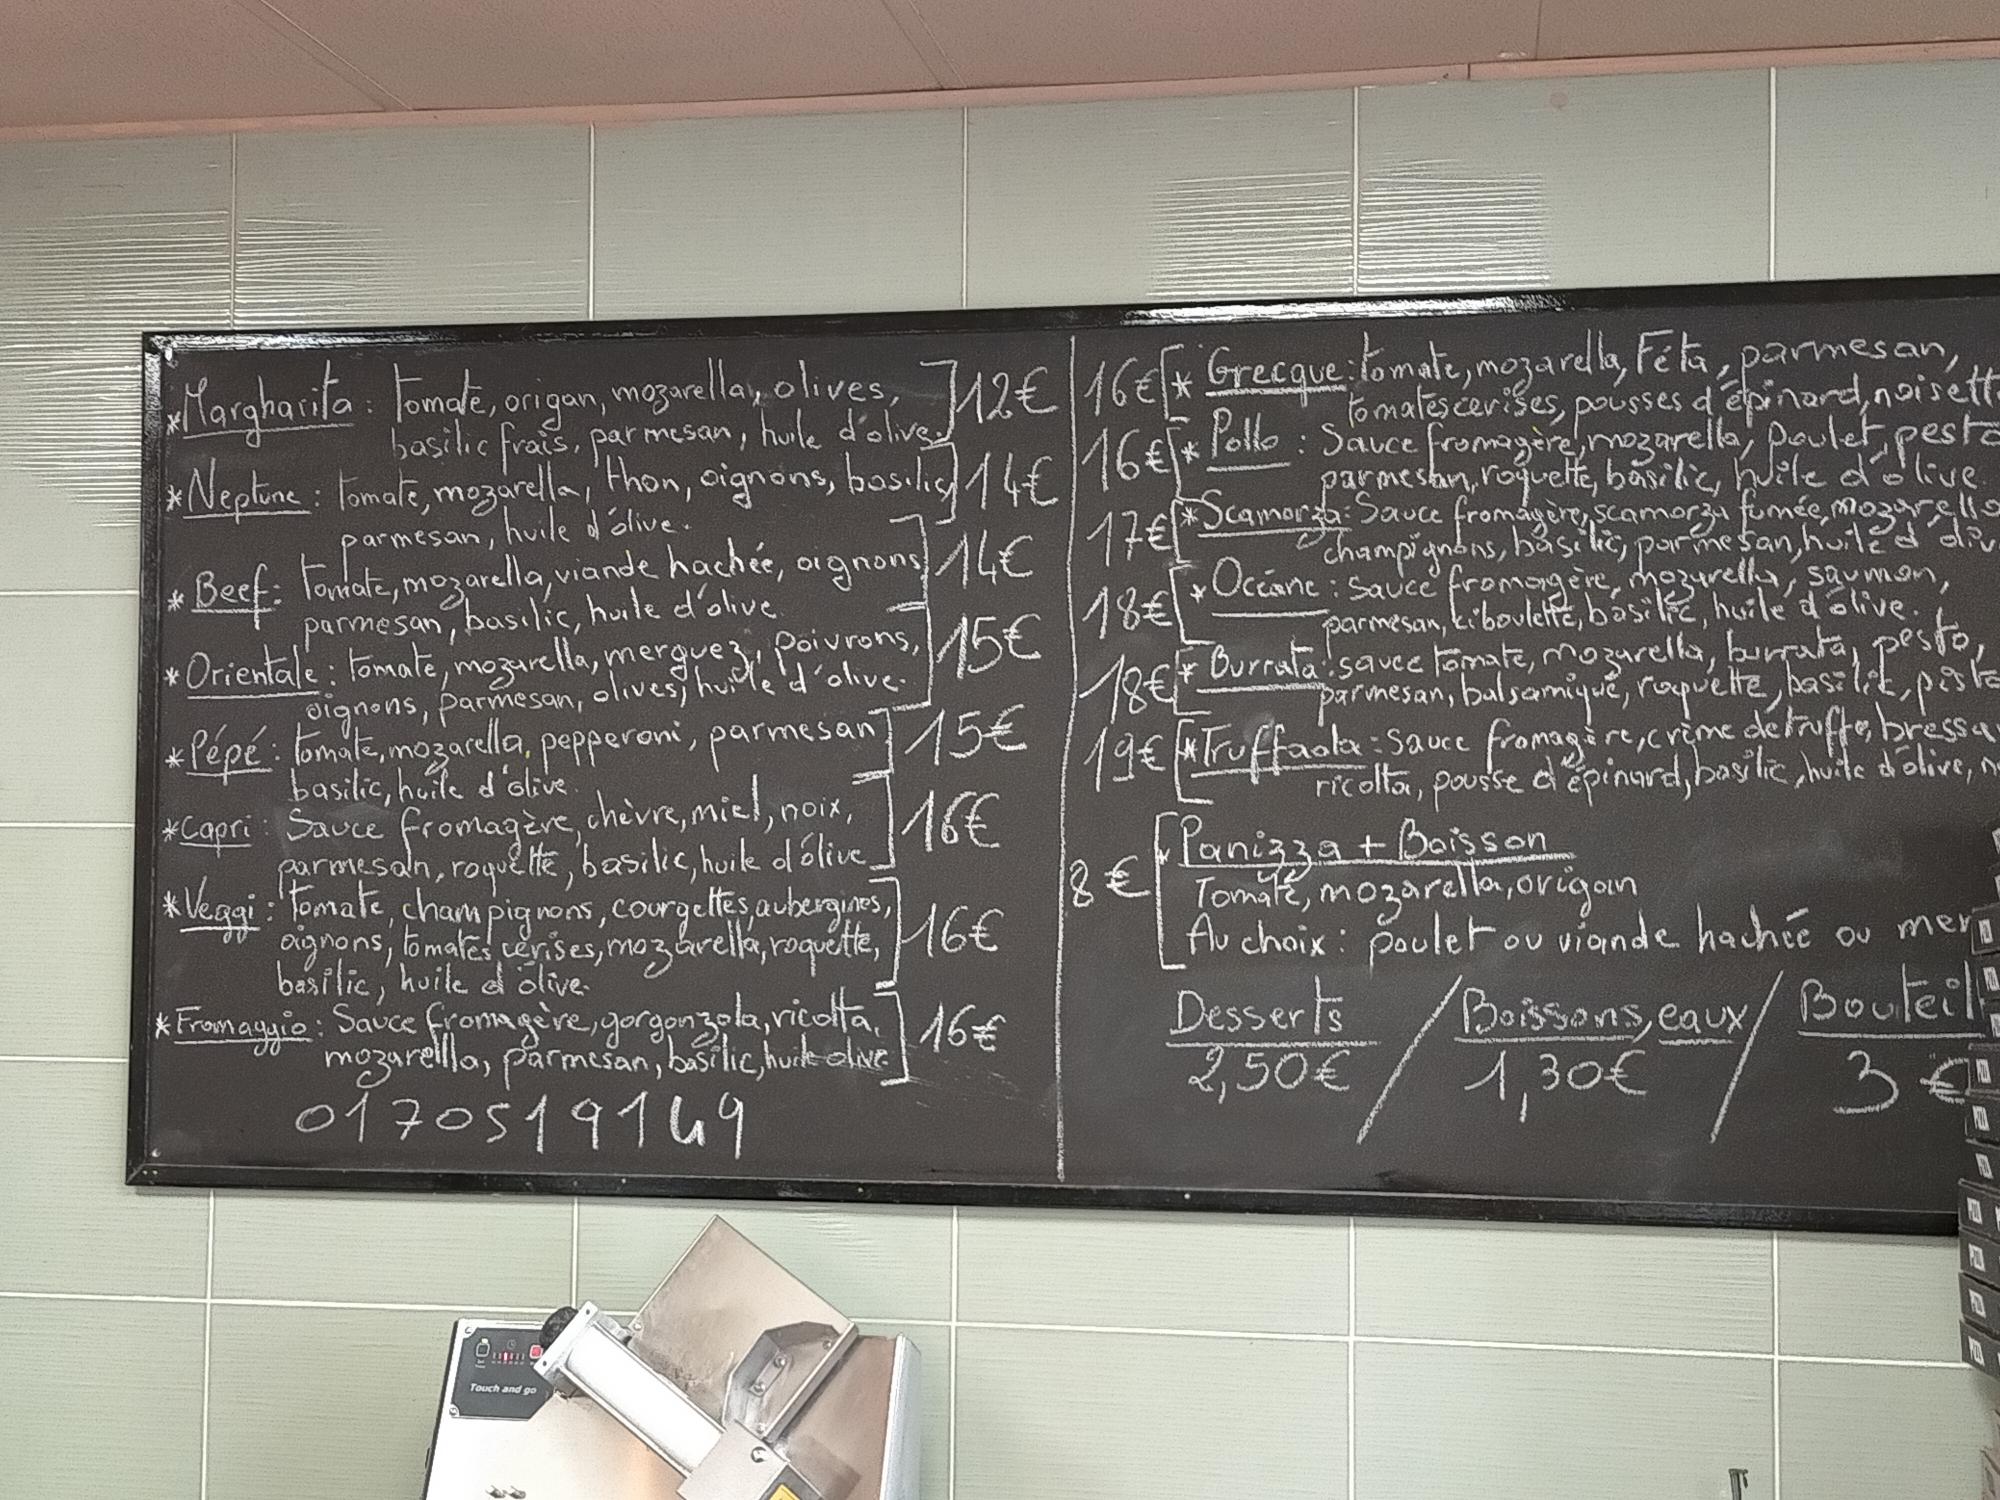 *Margharita : tomate, origan, mozarella, olives, ]12€
basilic frais, parmesan, huile d'olive.
*Neptune : tomate, mozarella, thon, oignons, basilic ]14€
parmesan, huile d'olive.
*Beef : tomate, mozarella, viande hachée, oignons ]14€
parmesan, basilic, huile d'olive.
*Orientale : tomate, mozarella, merguez, poivrons, ]15€
oignons, parmesan, olives, huile d'olive.
*Pépé : tomate, mozarella, pepperoni, parmesan ]15€
basilic, huile d'olive.
*Capri : Sauce fromagère, chèvre, miel, noix, ]16€
parmesan, roquette, basilic, huile d'olive
*Veggi : tomate, champignons, courgettes, aubergines,
oignons, tomates cerises, mozarella, roquette, ]16€
basilic, huile d'olive.
*Fromaggio : Sauce fromagère, gorgonzola, ricotta, ]16€
mozarella, parmesan, basilic, huile olive
0170519149
16€[* Grecque : tomate, mozarella, Féta, parmesan,
tomates cerises, pousses d'épinard,
16€[* Pollo : Sauce fromagère, mozarella, poulet, pesto
parmesan, roquette, basilic, huile d'olive.
17€[*Scamorza : Sauce fromagère, scamorza fumée,
champignons, basilic, parmesan, huile
18€[* Océane : sauce fromagère, mozarella, saumon,
parmesan, ciboulette, basilic, huile d'olive.
18€[* Burrata : sauce tomate, mozarella, burrata, pesto,
parmesan, balsamique, roquette, basilic,
19€[*Truffaola : Sauce fromagère, crème de truffe,
ricotta, pousse d'épinard, basilic, huile d'olive,
8€[* Panizza + Boisson
Tomate, mozarella, origan
Au choix : poulet ou viande hachée ou
Desserts / Boissons, eaux /
2,50€ 1,30€ 3€
Touch and go